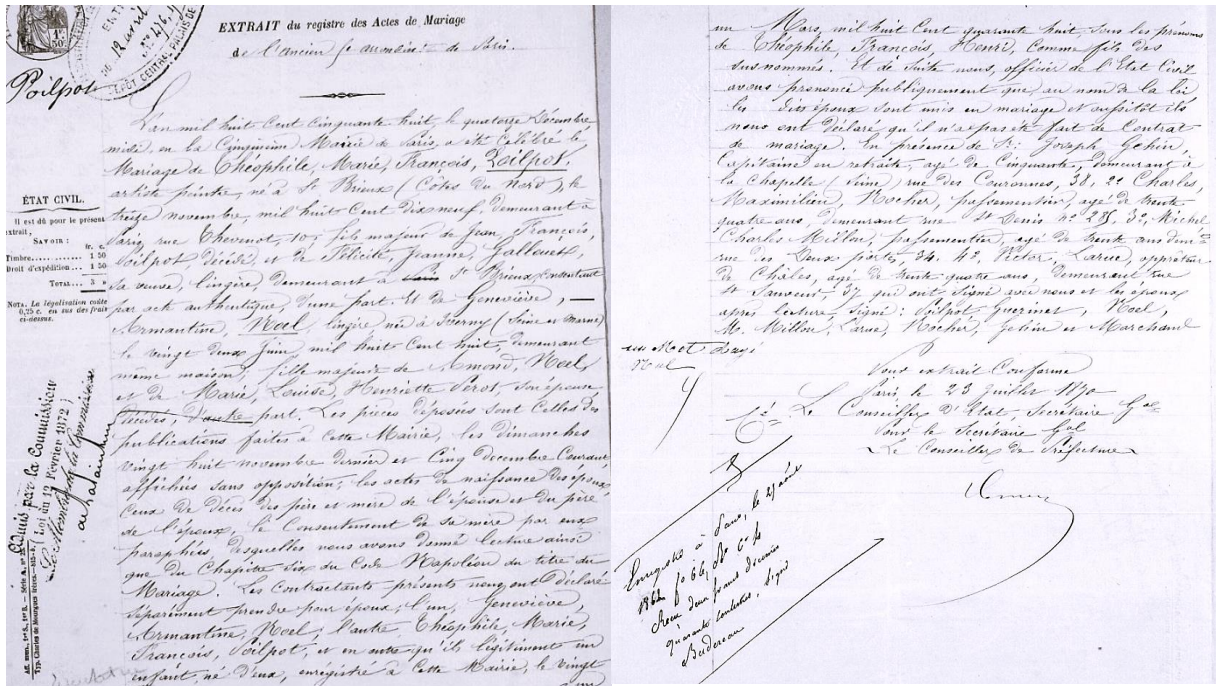 EXTRAIT du registre des Actes de Mariage
de l'ancien 5e arrondt de Paris.
12 avril
DÉPÔT CENTRAL PALAIS DE
Poilpot
L'an mil huit Cent Cinquante huit, le quatorze Décembre
midi, en la Cinquième Mairie de Paris, a été Célébré le
Mariage de Théophile, Marie, François, Poilpot,
artiste peintre, né à St Brieux (Côtes du Nord), le
treize novembre, mil huit Cent dix neuf, demeurant à
Paris, rue Thevenot, 10, fils majeur de Jean, François,
Poilpot, décédé et de Félicité, Jeanne, Gallouët,
sa veuve, lingère, demeurant à St Brieux Consentant
par acte authentique, d'une part. Et de Geneviève,
Armantine, Noel, lingère née à Iverny (Seine et Marne)
le vingt deux Juin, mil huit Cent huit, demeurant
même maison, fille majeure de Amond, Noel,
et de Marie, Louise, Henriette Perot, son épouse
décédés, d'autre part. Les pièces déposées sont Celles des
publications faites à Cette Mairie, les dimanches
vingt huit novembre dernier et Cinq Decembre Courant
affichées sans opposition; les actes de naissance des époux,
Ceux de décès des père et mère de l'épouse et du père
de l'époux, le Consentement de sa mère par eux
paraphées, desquelles nous avons donné lecture ainsi
que du Chapitre Six du Code Napoléon du titre du
Mariage. Les Contractants présents nous ont Déclaré
séparément prendre pour époux; l'un, Geneviève,
Armantine, Noel; l'autre, Théophile, Marie,
François, Poilpot; et en outre qu'ils légitiment un
enfant, né d'eux, enregistré à Cette Mairie, le vingt
ÉTAT CIVIL.
Il est dû pour le présent
extrait,
SAVOIR :
fr. c.
Timbre.......... 1 50
Droit d'expédition... 1 50
TOTAL... 3 »
NOTA. La légalisation coûte
0,25 c. en sus des frais
ci-dessus.
Admis par la Commission
(Loi du 12 Février 1872)
Le Membre de la Commission
Typ. Charles de Mourgues frères.
un Mars, mil huit Cent quarante huit, sous les prénoms
de Théophile, François, Henri, Comme fils des
susnommés. Et de suite nous, officier de l'Etat Civil
avons prononcé publiquement que, au nom de la loi
les dits époux sont unis en mariage et aussitôt ils
nous ont Déclaré qu'il n'a pas été fait de Contrat
de mariage. En présence de Srs Joseph Gehin,
Capitaine en retraite, agé de Cinquante, demeurant à
la Chapelle (Seine) rue des Couronnes, 38, 2º Charles,
Maximilien, Rocher, passementier, agé de trente
quatre ans, demeurant rue St Denis nº 285, 3º, Michel
Charles Millon, passementier, agé de trente ans demt
rue des Deux portes, 34. 4º, Victor, Larue, apprêteur
de Châles, agé de trente quatre ans, demeurant rue
St Sauveur, 37 qui ont signé avec nous et les époux
après lecture, Signé: Poilpot, Noel,
M. Millon, Larue, Rocher, Gehin et Marchand
un Mot Rayé
Nul
Pour extrait Conforme
Paris le 23 Juillet 1870
Le Conseiller d'Etat, Secrétaire Gal
Pour le Secrétaire Gal
Le Conseiller de Préfecture
Enregistré à Paris, le 29 août
fº 66,
Reçu deux francs décimes
quarante centimes, Signé